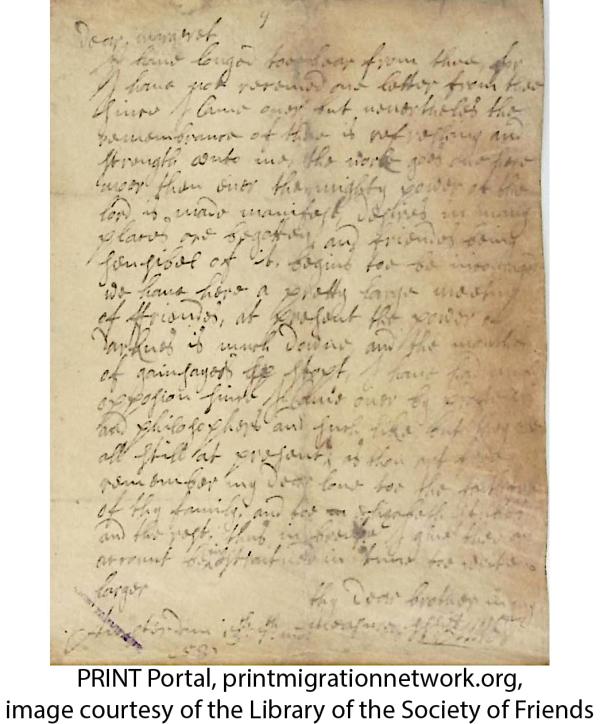 9
Dear, margret
I have longed toe hear from thee, for
I have not received one letter from thee
since I came over but neverthelės the
remembrance of thee is refreshing and
strength unto me, the worke goes one here
moor then ever the mighty power of the
lord is made manifest, desires in many
places are begotten, and friendes being
sensibel of it, begins toe be incouraged
we have here a pretty large meeting
of friendes, at present the power of
darknes is much downe and the mouthes
of gainsayers stopt, I have had
opposion since I came over by
and philosophers and such like but they are
all still at present, as thou art free
remember my dear love toe the
of thy family, and toe
and the rest, thus in breife I give thee an
account in time toe
larger
thy Dear brother in
Amsterdam
PRINT Portal, printmigrationnetwork.org,
image courtesy of the Library of the Society of Friends